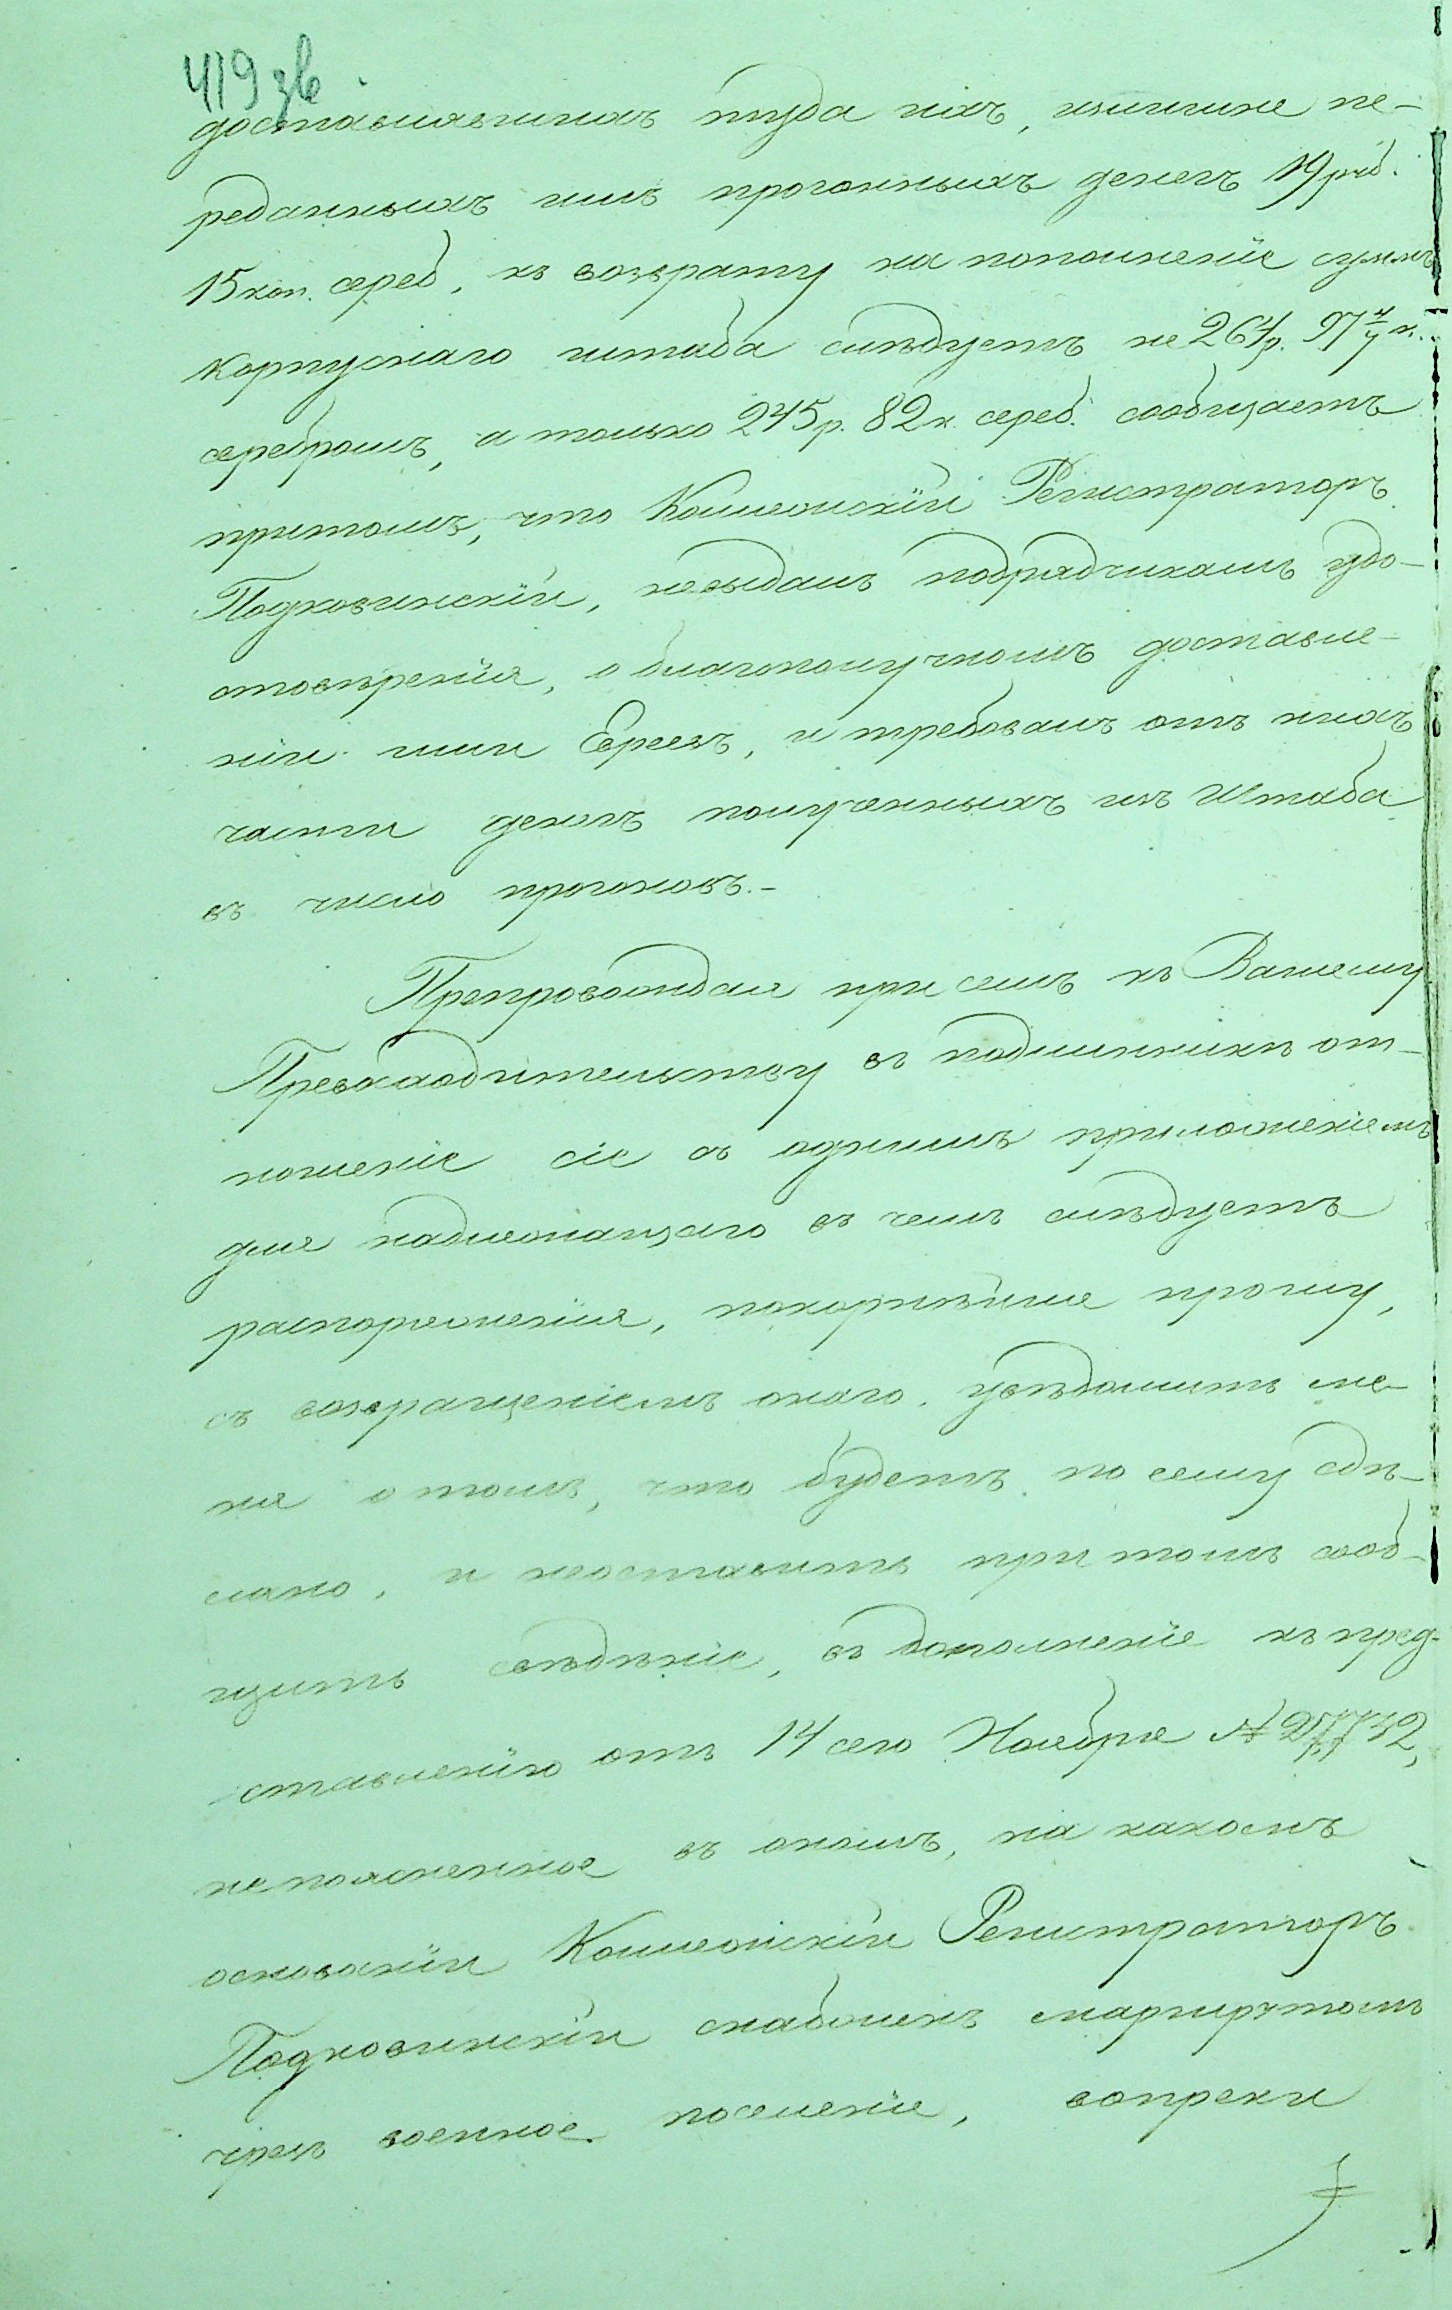 419 зв
доставлявшихъ туда ихъ, излишне пе-
реданныхъ имъ прогонныхъ денегъ 19 руб.
15 коп. сереб, къ возврату на пополненіе суммъ
Корпуснаго штаба слѣдуетъ не 264 р. 97 4/7 к.
серебромъ, а только 245 р. 82 к. сереб. сообщаетъ
притомъ, что Коллежскій Регистраторъ
Подковинскій, невыдалъ подрядчикамъ удо-
стовѣренія, о благополучномъ доставле-
ніи ими Евреевъ, и требовалъ отъ нихъ
части денегъ полученныхъ изъ Штаба
въ число прогоновъ.-
Препровождая при семъ къ Вашему
Превосходительству въ подлинникѣ от-
ношеніе сіе съ однимъ приложеніемъ
для надлежащаго въ чемъ слѣдуетъ
распоряженія, покорнѣйше прошу,
съ возвращеніемъ онаго, увѣдомить ме-
ня о томъ, что будетъ по сему сдѣ-
лано, и неоставить при томъ сооб-
щить свѣдѣніе, въ дополненіе къ пред-
ставленію отъ 14 сего Ноября № 27732,
непоясненное въ ономъ, на какомъ
основаніи Коллежскій Регистраторъ
Подковинскій снабженъ маршрутомъ
чрезъ военное поселеніе, вопреки